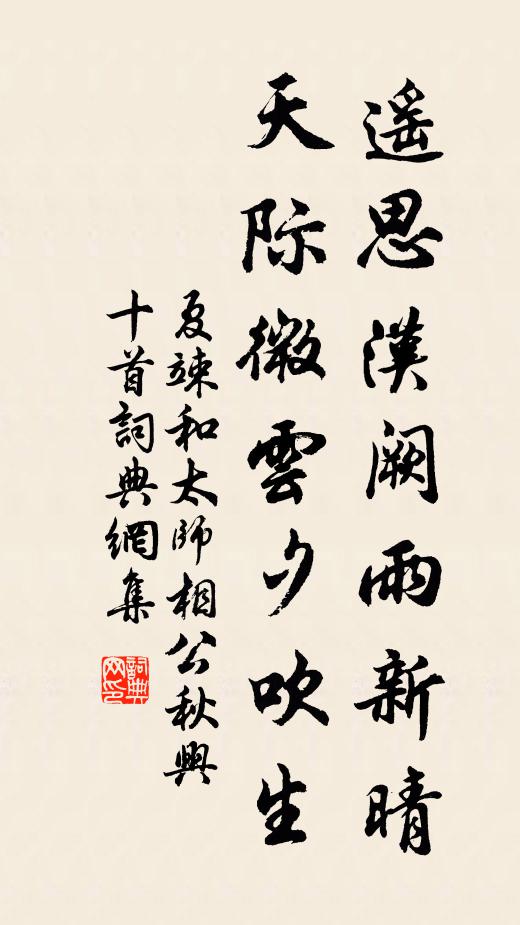 遥思漢阙雨新晴
天际微雲夕吹生
夏竦和太师相公秋興
十首詞典網集
詞典网印